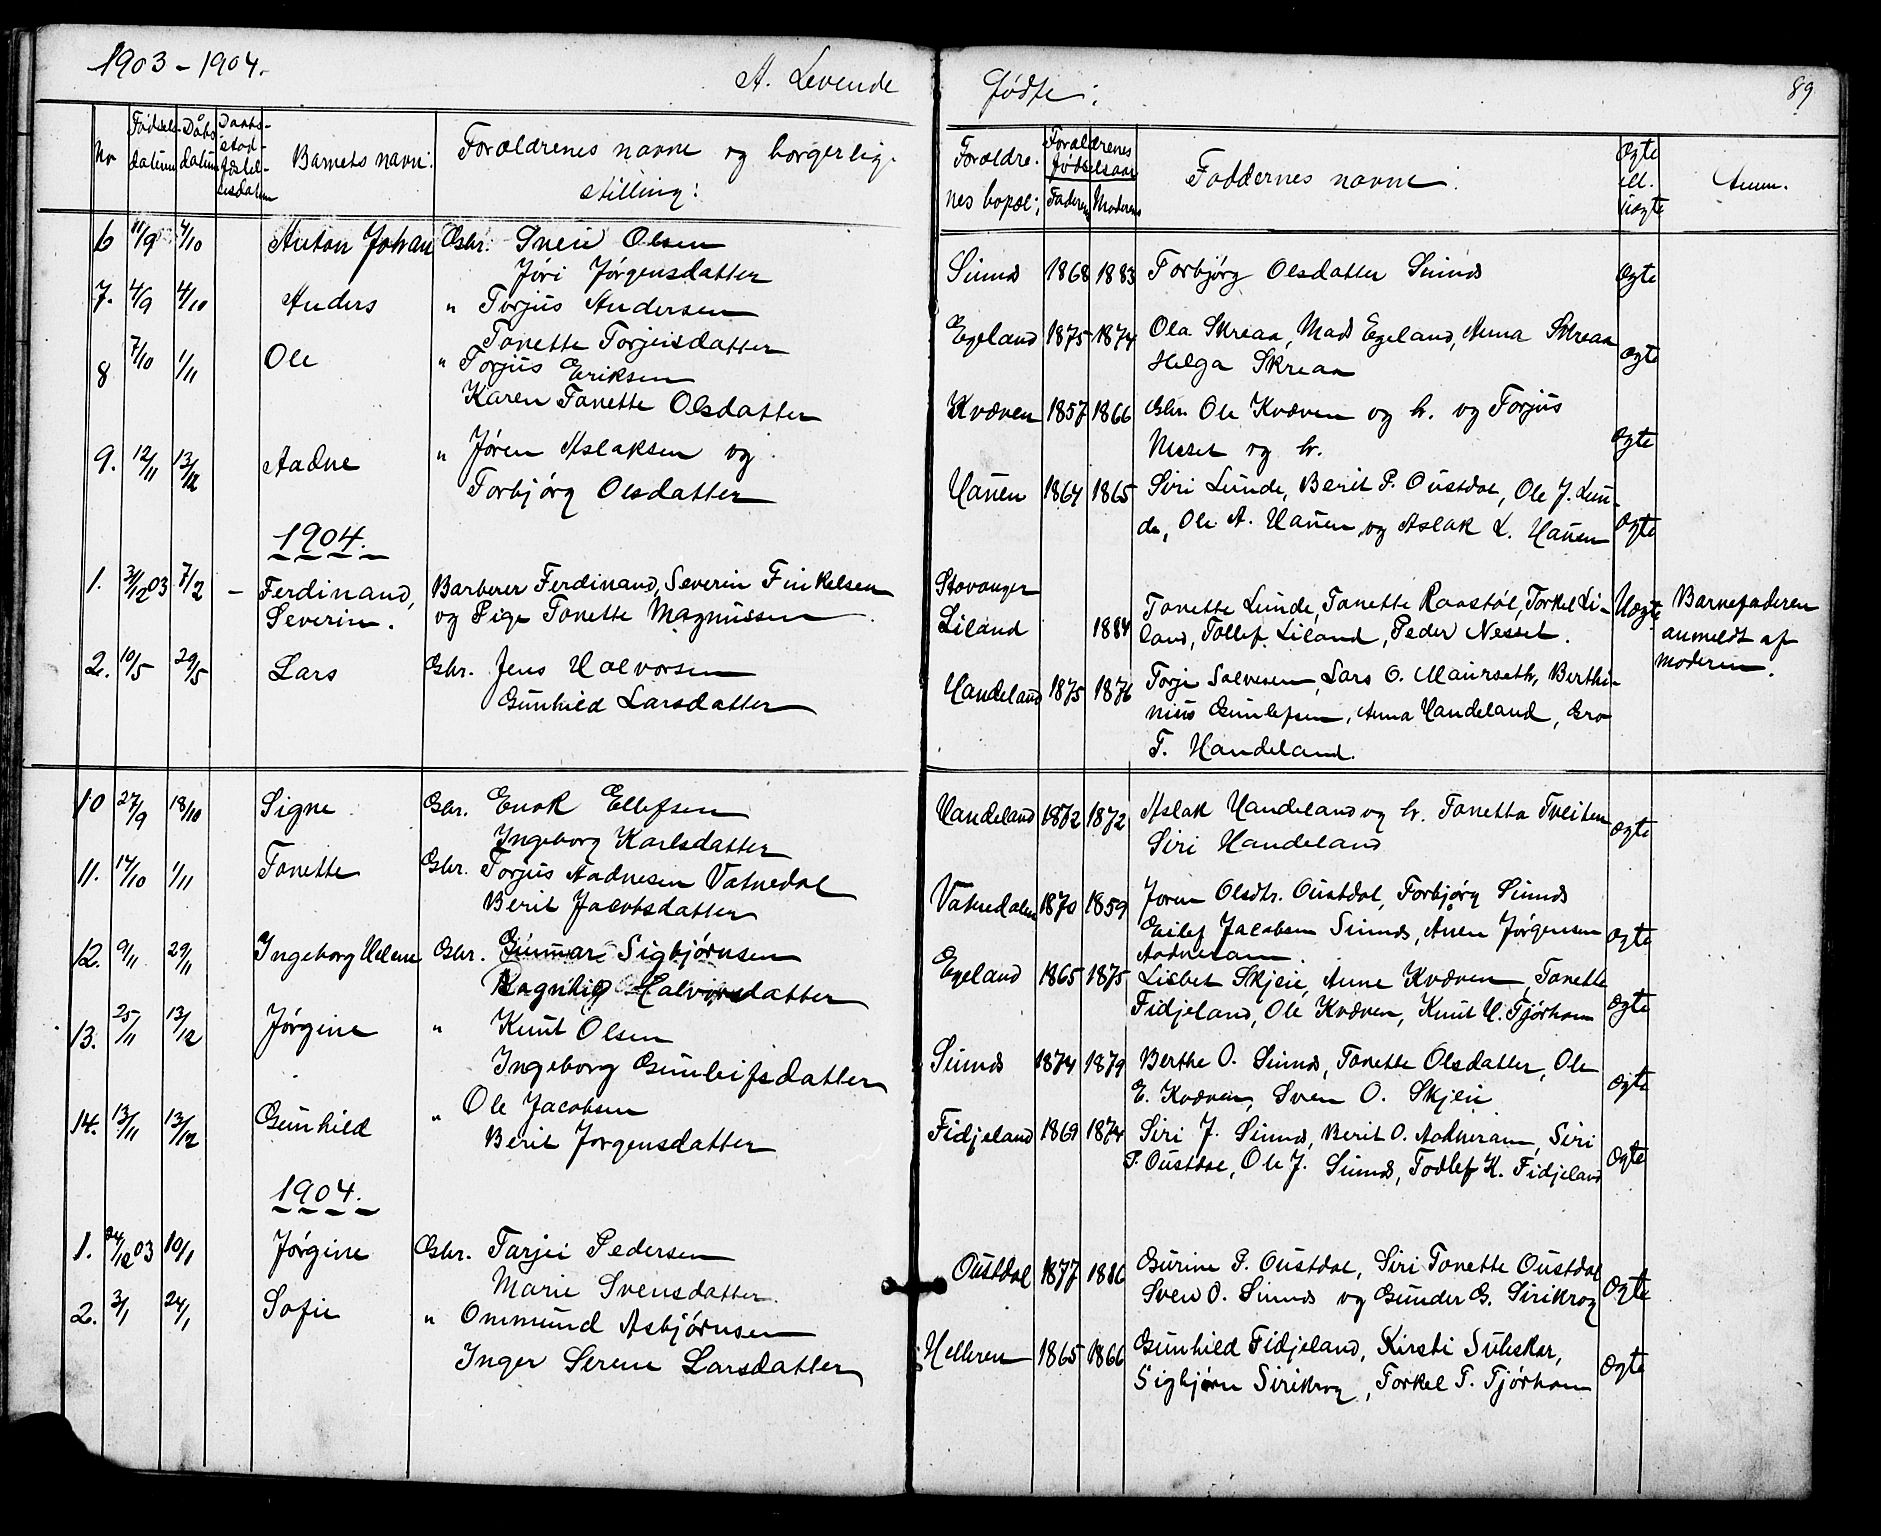 1903 - 1904.
A. Levende fødte:
89
No
Fødsels-
datum
Dåbs
datum
Daabs-
stad-
fæstel-
sesdatum
Barnets navn:
Forældrenes navne og borgerlig.
stilling:
Forældre-
nes bopæl:
Forældrenes
fødselsaar
Faderen
Moderens
Faddernes navne:
Ægte
ell.
uægte
Anm.
6 11/9 4/10 Anton Johan Gbr. Sven Olsen
Jøri Jørgensdatter
Sinnes 1868 1883 Torbjørg Olsdatter Sinnes Ægte
7. 4/9 4/10 Anders " Torjus Andersen
Tonette Torjeisdatter
Egeland 1875 1874 Ola Skreaa, Mads Egeland, Anna Skreaa
Helga Skreaa Ægte
8 7/10 1/11 Ole " Torjus Eeriksen
Karen Tonette Olsdatter
Kvæven 1857 1866 Gbr. Ole Kvæven og h. og Torjus
Neset og h. Ægte
9. 12/11 13/12 Aadne " Jøren Aslaksen og
Torbjørg Olsdatter
Hauen 1864 1865 Siri Lunde, Berit P. Oustdal, Ole J. Lun-
de, Ole A. Hauen og Aslak L. Hauen Ægte
1904.
1. 31/12 03 7/2 - Ferdinand,
Severin.
Barberer Ferdinand, Severin Finkelsen
og Pige Tonette Magnussen
Stavanger
Liland 1884
Tonette Lunde, Tonette Raastøl, Torkel Li-
land, Tollef Liland, Peder Nesset.
Uægte
Barnefaderen
anmeldt af
moderen.
2. 10/5 29/5 Lars Gbr. Jens Halvorsen
Gunhild Larsdatter
Handeland 1875 1876 Torje Salvesen, Lars O. Maurseth, Berthi-
nius Gunlefsen, Anna Handeland, Gro
T. Handeland.
10 27/9 18/10 Signe Gbr. Enok Ellefsen
Ingeborg Karlsdatter
Handeland 1872 1872 Aslak Handeland og h. Tonetta Tveiten
Siri Handeland Ægte
11. 14/10 1/11 Tonette Gbr. Torjus Aadnesen Vatnedal
Berit Jacobsdatter
Vatnedalen 1870 1859 Joren Olsdtr. Oustdal, Torbjørg Sinnes
Eilef Jacobsen Sinnes, Anen Jørgensen
Aadneram. Ægte
12. 9/11 29/11 Ingeborg Helene Gbr. Gunnar Sigbjørnsen
Ragnhild Halvorsdatter
Egeland 1865 1875 Lisbet Skjeie, Anne Kvæven, Tonette
Fidjeland, Ole Kvæven, Knut H. Tjørhom Ægte
13. 25/11 13/12 Jørgine " Knut Olsen
Ingeborg Gunleifsdatter
Sinnes 1874 1879 Berthe O. Sinnes, Tonette Olsdatter, Ole
E. Kvæven, Sven O. Skjeie Ægte
14. 13/11 13/12 Gunhild " Ole Jacobsen
Berit Jorgensdatter
Fidjeland 1869 1874 Siri J. Sinnes, Berit O. Aadneram, Siri
P. Oustdal, Ole J. Sinnes, Todlef K. Fidjeland Ægte
1904.
1. 24/12 03 10/1 Jørgine Gbr. Tarjei Pedersen
Marie Svensdatter
Oustdal 1877 1886 Gurine P. Oustdal, Siri Tonette Oustdal
Sven O. Sinnes og Gunder G. Sirikrog Ægte
2. 3/1 24/1 Sofie " Ommund Asbjørnsen
Inger Serene Larsdatter
Helleren 1865 1866 Gunhild Fidjeland, Kirsti Suleskar,
Sigbjørn Sirikrog, Torkel T. Tjørhom Ægte